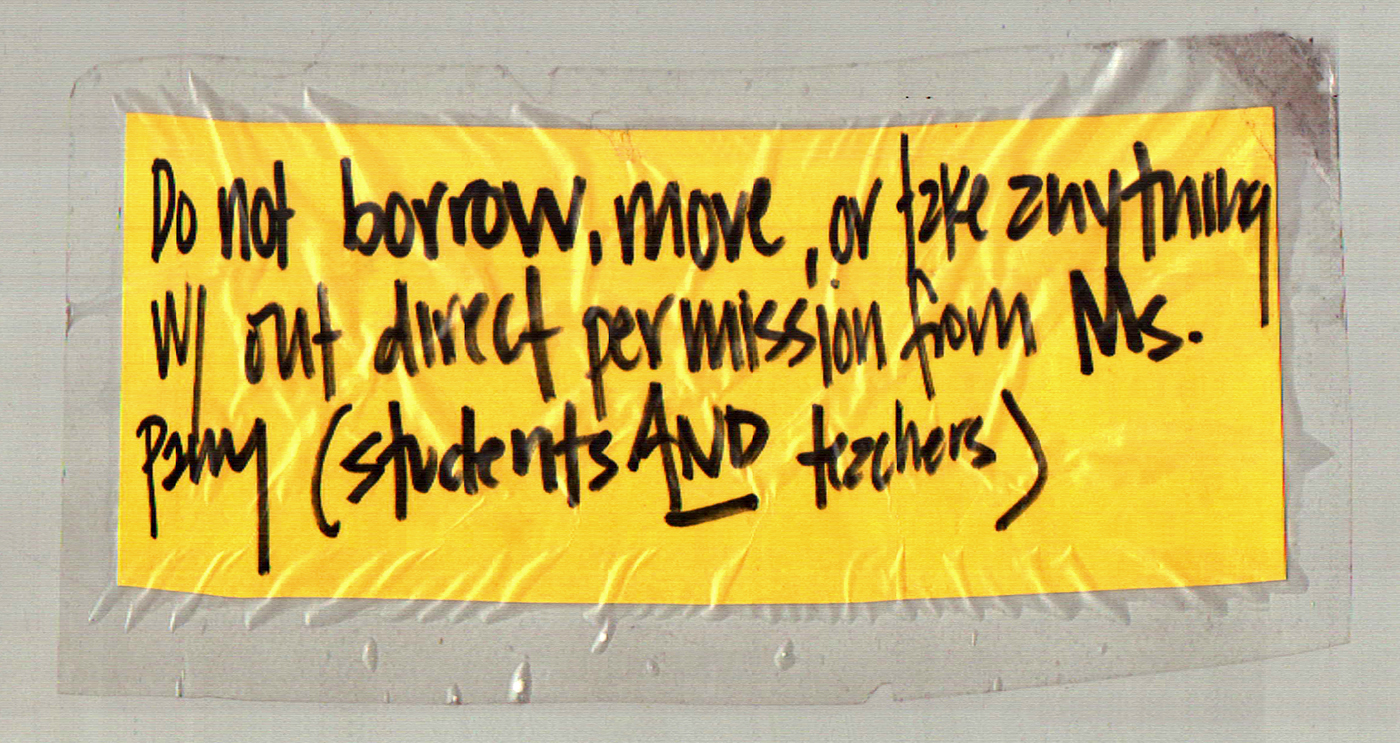 Do not borrow, move, or take anything
w/out direct permission from Ms.
(students AND teachers)